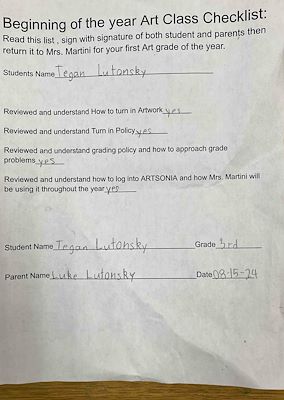 Beginning of the year Art Class Checklist:
Read this list , sign with signature of both student and parents then
return it to Mrs. Martini for your first Art grade of the year.
Students Name Tegan Lutonsky
Reviewed and understand How to turn in Artwork yes
Reviewed and understand Turn in Policy yes
Reviewed and understand grading policy and how to approach grade
problems yes
Reviewed and understand how to log into ARTSONIA and how Mrs. Martini will
be using it throughout the year yes
Student Name Tegan Lutonsky Grade 3rd
Parent Name Luke Lutonsky Date 08-15-24